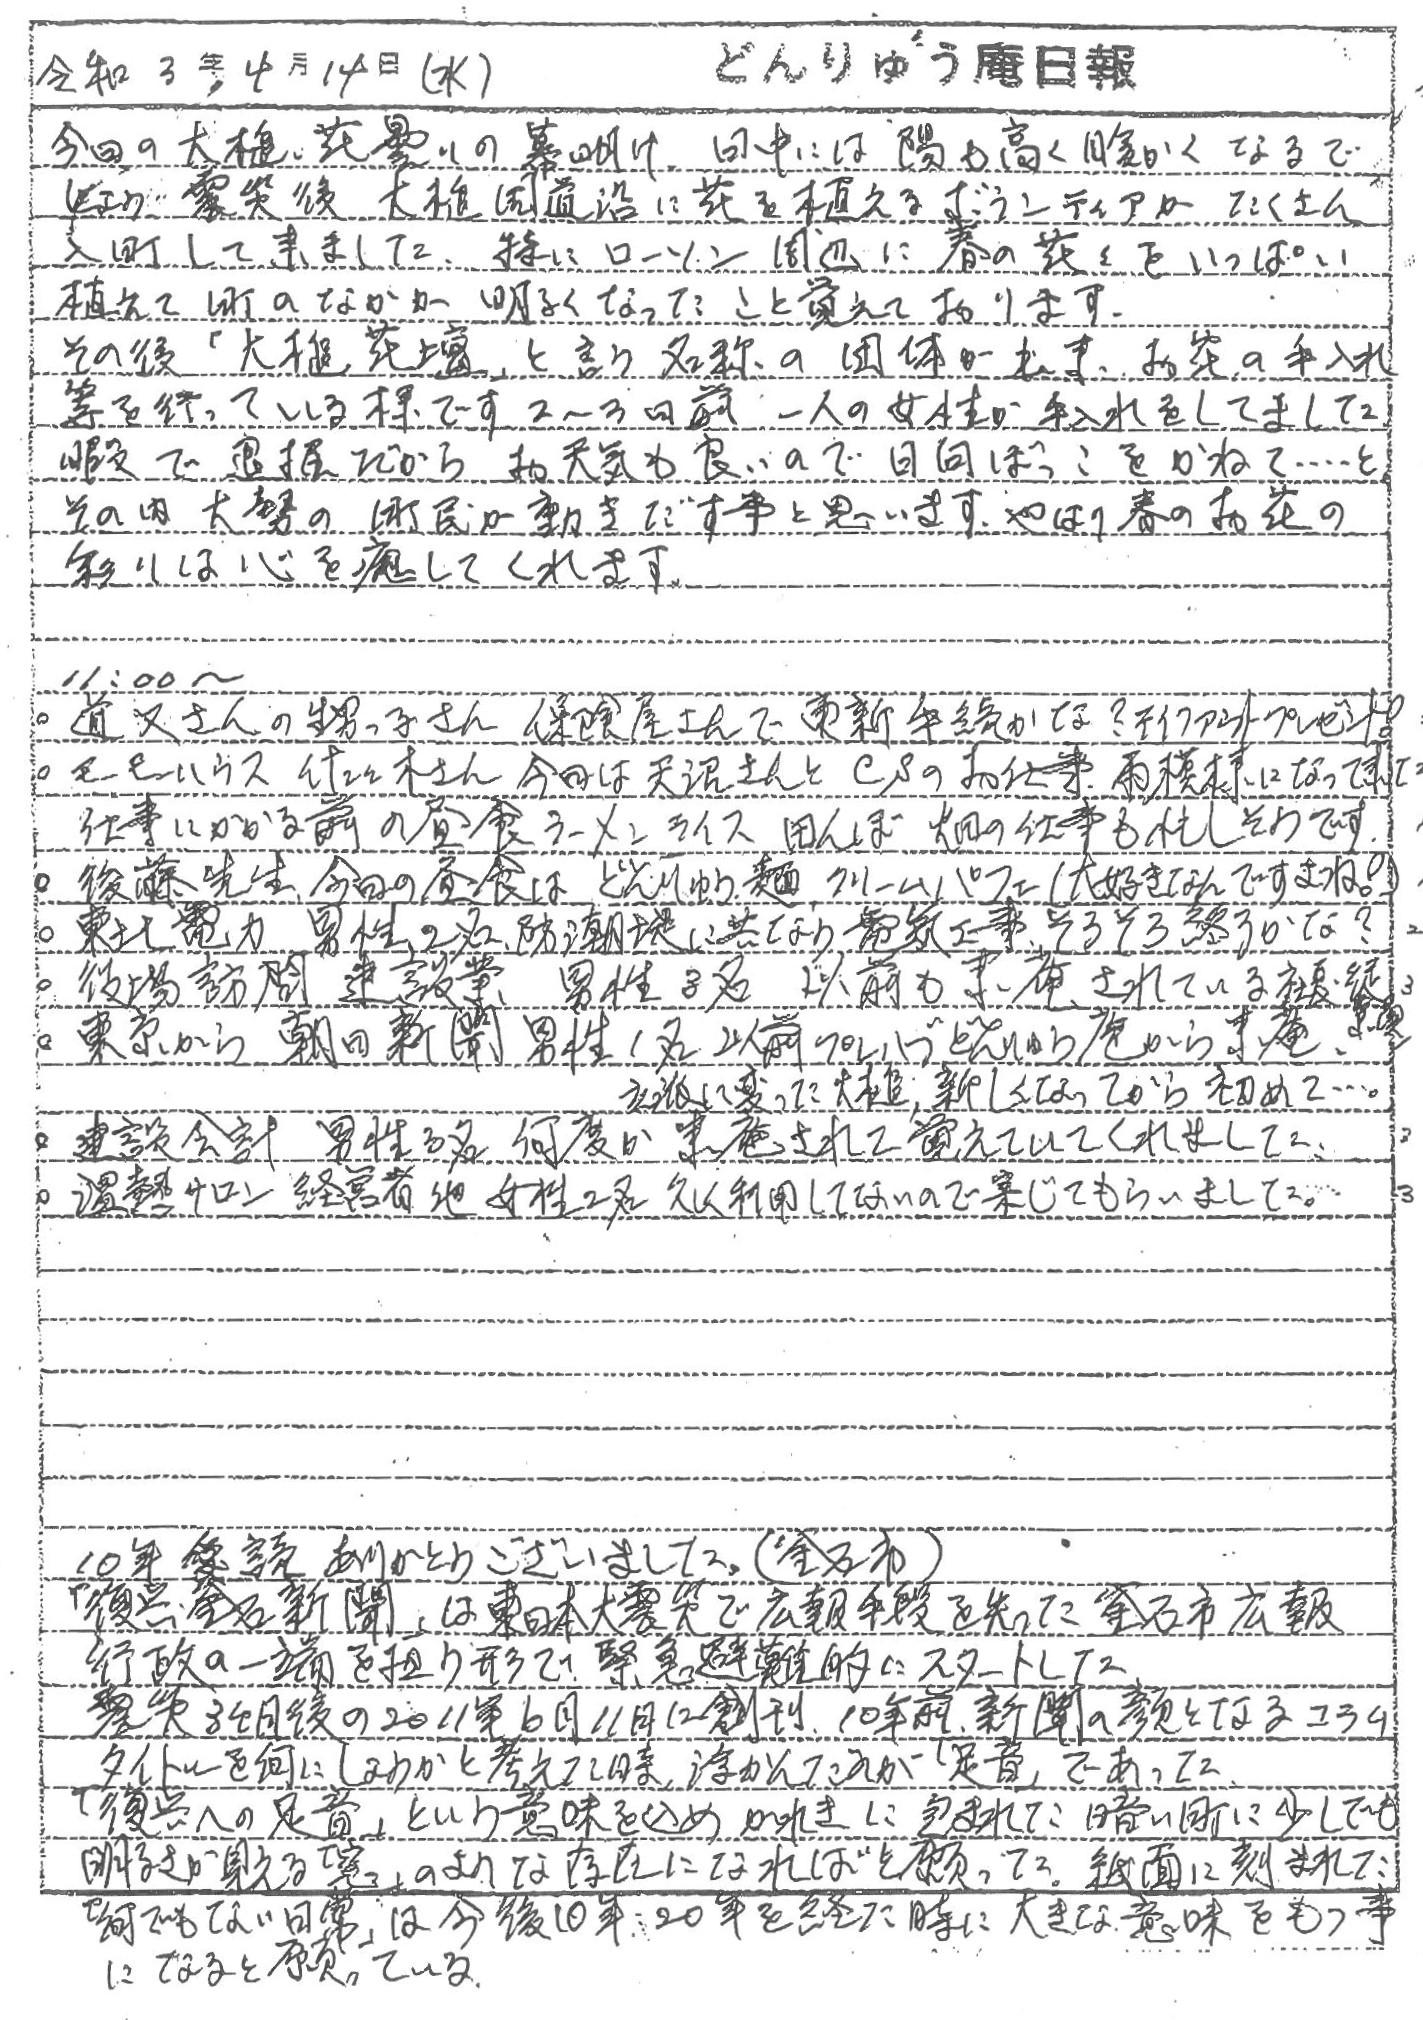 令和3年4月14日(水) どんりゅう庵日報
今日の大槌、花曇りの幕明け、日中には陽も高く暖かくなるで
しょう 震災後 大槌国道沿に花を植えるボランティアが たくさん
入町して来ました、特に ローソン 周辺に春の花々をいっぱい
植えて町のなかが 明るくなったこと覚えております.
その後「大槌花壇」と言う名称の団体が出来、お花の手入れ
等を行っている様です 2〜3日前 一人の女性が手入れをしてました
暇で退屈だから お天気も良いので 日向ぼっこをかねて……と
その内 大勢の 町民が動きだす事と思います、やはり春のお花の
彩りは心を癒してくれます。
11:00〜
○ 道又さんの甥っ子さん 保険屋さんで 更新手続かな？ティファニープレゼント。
○ モーモーハウス 佐々木さん 今日は天沼さんと CSのお仕事、雨模様になって来た
仕事にかかる前の昼食ラーメンライス 田んぼ 畑の仕事も忙しそうです.
○ 後藤先生 今日の昼食は どんりゅう麺、クリームパフェ(大好きなんですよね。)
○ 東北電力 男性2名、防潮堤に共なう電気工事、そろそろ終るかな？
○ 役場訪問 建設業 男性3名 以前も来庵されている
○ 東京から 朝日新聞 男性1名 以前プレハブどんりゅう庵から来庵、
立派に変った大槌、新しくなってから初めて…。
○ 建設会計 男性3名 何度か来庵されて覚えていてくれました、
○ 温熱サロン 経営者他 女性2名 久しく利用してないので案じてもらいました。
10年愛読 ありがとうございました。(釜石市)
「復興釜石新聞」は東日本大震災で広報手段を失った 釜石市広報
行政の一端を担う形で、緊急避難的にスタートした、
震災3ヶ月後の2011年6月11日に創刊、10年前、新聞の顔となるコラム
タイトルを何にしようかと考えた時、浮かんだのが「足音」であった、
「復興への足音」という意味を込め がれきに包まれた暗い町に少しでも
明るさが見える「窓」のような存在になればと願った。紙面に刻まれた
「何でもない日常」は今後10年、20年を経た時に大きな意味をもつ事
になると願っている.